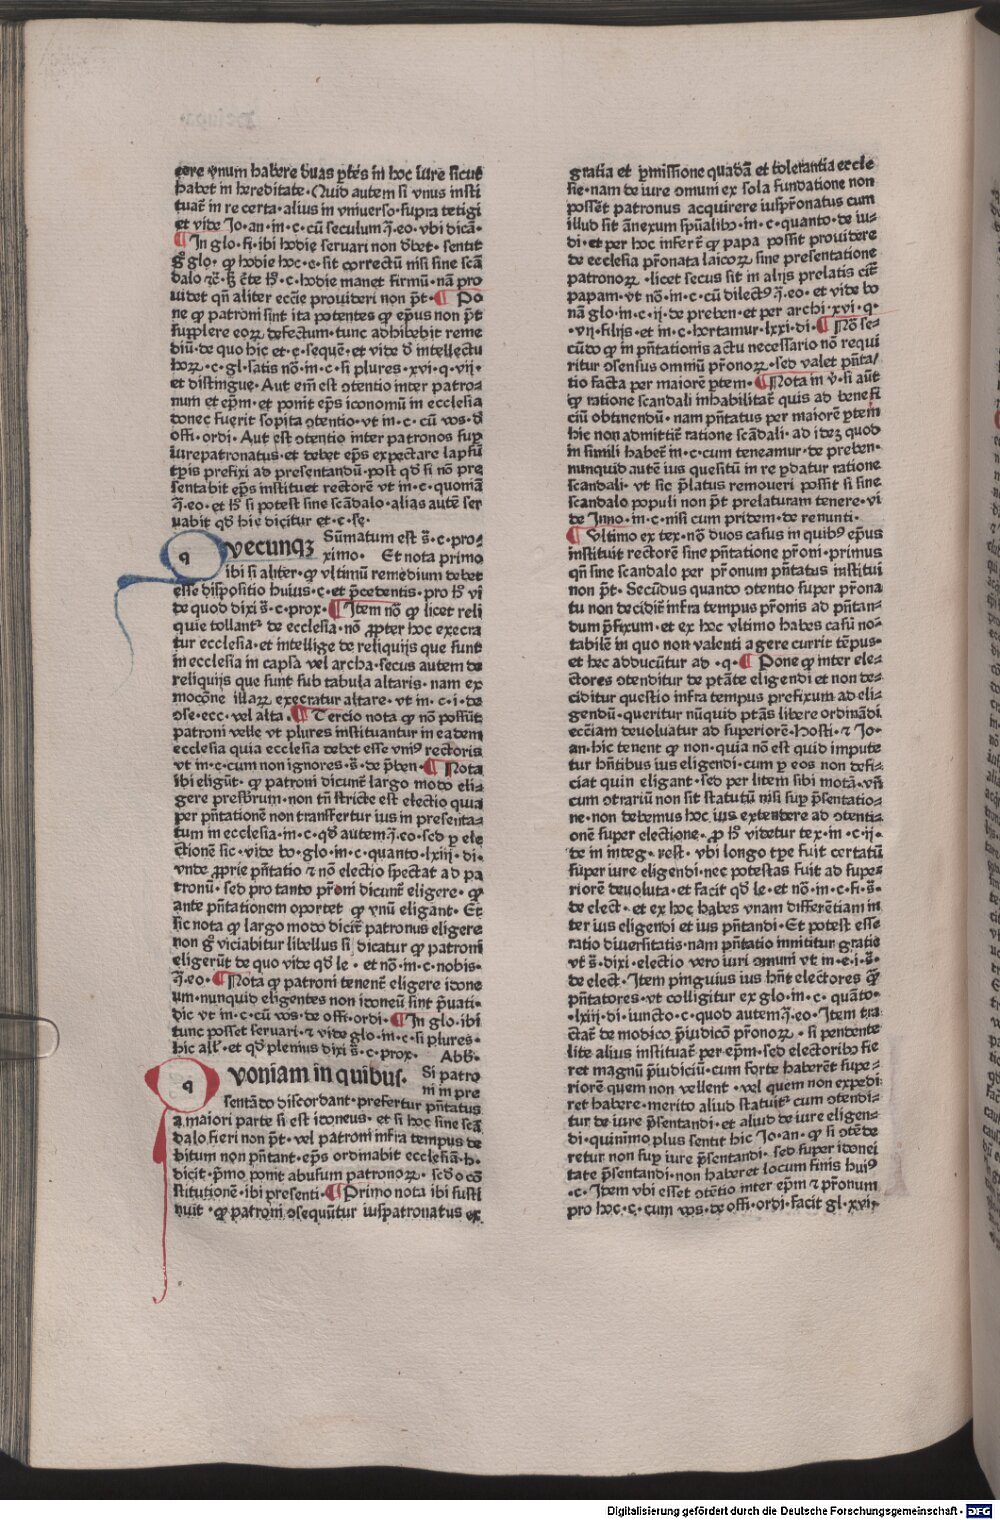 cere vnum habere duas ptes in hoc iure sicut
habet in hereditate· Quid autem si vnus insti
tuat̄ in re certa· alius in vniuerso· supra tetigi
et vide Jo·an·in·c·cū seculum·q̄·eo·vbi dicā·
¶ In glo·fi·ibi hodie seruari non dꝫbet· sentit
gͦ glo· ꝙ hodie hoc·c·sit correctū nisi sine scā
dalo
uidet qn̄ aliter eccīe prouideri non pōt·¶ Po
ne ꝙ patroni sint ita potentes ꝙ ep̄us non pōt
supplere eoꝝ defectum· tunc adhibebit reme
diū· de quo hic et·c·sequē· et vide ꝺ intellectu
hoꝝ·c·gl·satis nō·in·c·si plures·xvi·q·vij·
et distingue· Aut em̄ est ↄtentio inter patro⸗
num et ep̄m· et ponit ep̄s iconomū in ecclesia
donec fuerit sopita ↄtentio· vt in·c·cū vos·ꝺ
offi·ordi· Aut est ↄtentio inter patronos sup̱
iurepatronatus· et debet ep̄s expectare lapsū
tp̄is prefixi ad presentandū· post qd si nō pre
sentabit ep̄s instituet rectorē vt in·c·quoniā
q̄·eo· et hꝫ si potest sine scādalo· alias autē ser
uabit qd hic dicitur et·c·se·
q vecunqꝫ Sūmatum est s̄·c·pro⸗
ximo· Et nota primo
ibi si aliter· ꝙ vltimū remedium debet
esse dispositio huius·c·et p̄cedentis· pro hꝫ vi
de quod dixi s̄·c·prox·¶ Item nō ꝙ licet reli
quie tollant᷑ de ecclesia· nō ꝓpter hoc execra
tur ecclesia· et intellige de reliquijs que sunt
in ecclesia in capsa vel archa· secus autem de
reliquijs que sunt sub tabula altaris· nam ex
mocōne illaꝝ execratur altare· vt in·c·i·de
ↄse·ecc·vel alta·¶ Tercio nota ꝙ nō possūt
patroni velle vt plures instituantur in eadem
ecclesia quia ecclesia debet esse vniꝰ rectoris
vt in·c·cum non ignores·s̄·de p̄ben·¶ Nota
ibi eligūt· ꝙ patroni dicunt̄ largo modo eli⸗
gere presbrum· non tn̄ stricte est electio quia
per p̄ntationē non transfertur ius in presenta⸗
tum in ecclesia·in·c·qd autem q̄·eo· sed ꝑ ele
ctionē sic· vide bo·glo·in·c·quanto·lxiij·di·
vnde ꝓprie p̄ntatio ⁊ nō electio spectat ad pa
tronū· sed pro tanto pr̄oni dicunt̄ eligere· ꝙ
ante p̄ntationem oportet ꝙ vnū eligant· Et
sic nota ꝙ largo modo dicit̄ patronus eligere
non gͦ viciabitur libellus si dicatur ꝙ patroni
eligerūt de quo vide qd le· et nō·in·c·nobis·
q̄·eo·¶ Nota ꝙ patroni tenent̄ eligere idone
um· nunquid eligentes non idoneū sint p̄uati·
dic vt in·c·cū vos·de offi·ordi·¶ In glo·ibi
tunc posset seruari· ⁊ vide glo·in·c·si plures·
hic all̄· et qd plenius dixi s̄·c·prox· Abb̄·
q voniam in quibus· Si patro
ni in pre
sentādo discordant· prefertur p̄ntatus
a maiori parte si est idoneus· et si hoc sine scā
dalo fieri non pōt· vel patroni infra tempus de
bitum non p̄ntant· ep̄s ordinabit ecclesiā·h·
dicit· p̄mo ponit abusum patronoꝝ· scdo cō
stitutionē·ibi presenti·¶ Primo nota ibi susti
nuit· ꝙ patroni ↄsequūtur iuspatronatus ex
gratia et p̱missione quadā et tolerantia eccle
sie· nam de iure ↄmuni ex sola fundatione non
posset patronus acquirere iusp̄ronatus cum
illud sit ānexum sp̄uālibꝰ·in·c·quanto·de iu⸗
di·et per hoc infert̄ ꝙ papa possit prouidere
de ecclesia pr̄onata laicoꝝ sine presentatione
patronoꝝ· licet secus sit in alijs prelatis cit̄
papam· vt nō·in·c·cū dilectꝰ q̄·eo· et vide bo
nā glo·in·c·ij·de preben· et per archi·xvi·q·
·vij·filijs·et in·c·hortamur·lxxi·di·¶ Nō se⸗
cūdo ꝙ in p̄ntationis actu necessario nō requi
ritur ↄsensus omniū pr̄onoꝝ· sed valet p̄nta⸗
tio facta per maiorē ptem·¶ Nota in ꝟ·si aūt
ꝙ ratione scandali inhabilitat̄ quis ad benefi
ciū obtinendū· nam p̄ntatus per maiorē ptem
hic non admittit̄ ratione scādali· ad idez quod
in simili habet̄ in·c·cum teneamur·de preben·
nunquid autē ius quesitū in re p̱datur ratione
scandali· vt sic p̄latus remoueri possit si sine
scandalo populi non pōt prelaturam tenere· vi
de Inno·in·c·nisi cum pridem·de renunti·
¶ Vltimo ex tex·nō duos casus in quibꝰ ep̄us
instituit rectorē sine p̄ntatione pr̄oni· primus
qn̄ sine scandalo per pr̄onum p̄ntatus institui
non pōt· Secūdus quando ↄtentio super pr̄ona
tu non decidit̄ infra tempus pr̄onis ad p̄ntan⸗
dum p̄fixum· et ex hoc vltimo habes casū no⸗
tabilē in quo non valenti agere currit tēpus·
et hec adducūtur ad·q·¶ Pone ꝙ inter ele⸗
ctores ↄtenditur de ptāte eligendi et non de⸗
ciditur questio infra tempus prefixum ad eli⸗
gendū· queritur nūquid ptās libere ordinādi
eccīam deuoluatur ad superiorē· Hosti·⁊ Jo·
an·hic tenent ꝙ non· quia nō est quid impute
tur hn̄tibus ius eligendi· cum ꝑ eos non defi⸗
ciat quin eligant· sed per litem sibi motā· vn̄
cum ↄtrariū non sit statutū nisi sup̱ p̄sentatio⸗
ne· non debemus hoc ius extendere ad ↄtenti⸗
onē super electione· ꝓ hꝫ videtur tex·in·c·ij·
de in integ·rest· vbi longo tp̄e fuit certatū
super iure eligendi· nec potestas fuit ad supe⸗
riorē deuoluta· et facit qd le·et nō·in·c·fi·s̄·
de elect· et ex hoc habes vnam differētiam in
ter ius eligendi et ius p̄ntandi· Et potest esse
ratio diuersitatis· nam p̄ntatio innititur gratie
vt s̄·dixi· electio vero iuri ↄmuni vt in·c·i·s̄·
de elect· Item pinguius ius hn̄t electores ꝙ̄
p̄ntatores· vt colligitur ex glo·in·c·quāto·
·lxiij·di·iuncto·c·quod autem q̄·eo· Item tra
ctat̄ de modico p̄iudicō pr̄onoꝝ· si pendente
lite alius instituat̄ per ep̄m· sed electoribꝰ fie
ret magnū p̄iudiciū· cum forte haberēt supe⸗
riorē quem non vellent· vel quem non expedi
ret habere· merito aliud statuit᷑ cum ↄtendi⸗
tur de iure p̄sentandi· et aliud de iure eligen⸗
di· quinimo plus sentit hic Jo·an· ꝙ si ↄtēde
retur non sup̱ iure p̄sentandi· sed super idonei
tate p̄sentandi· non haberet locum finis huiꝰ
·c· Item vbi esset ↄtētio inter ep̄m ⁊ pr̄onum
pro hoc·c·cum vos·de offi·ordi·facit gl·xvi·
Digitalisierung gefördert durch die Deutsche Forschungsgemeinschaft · DFG